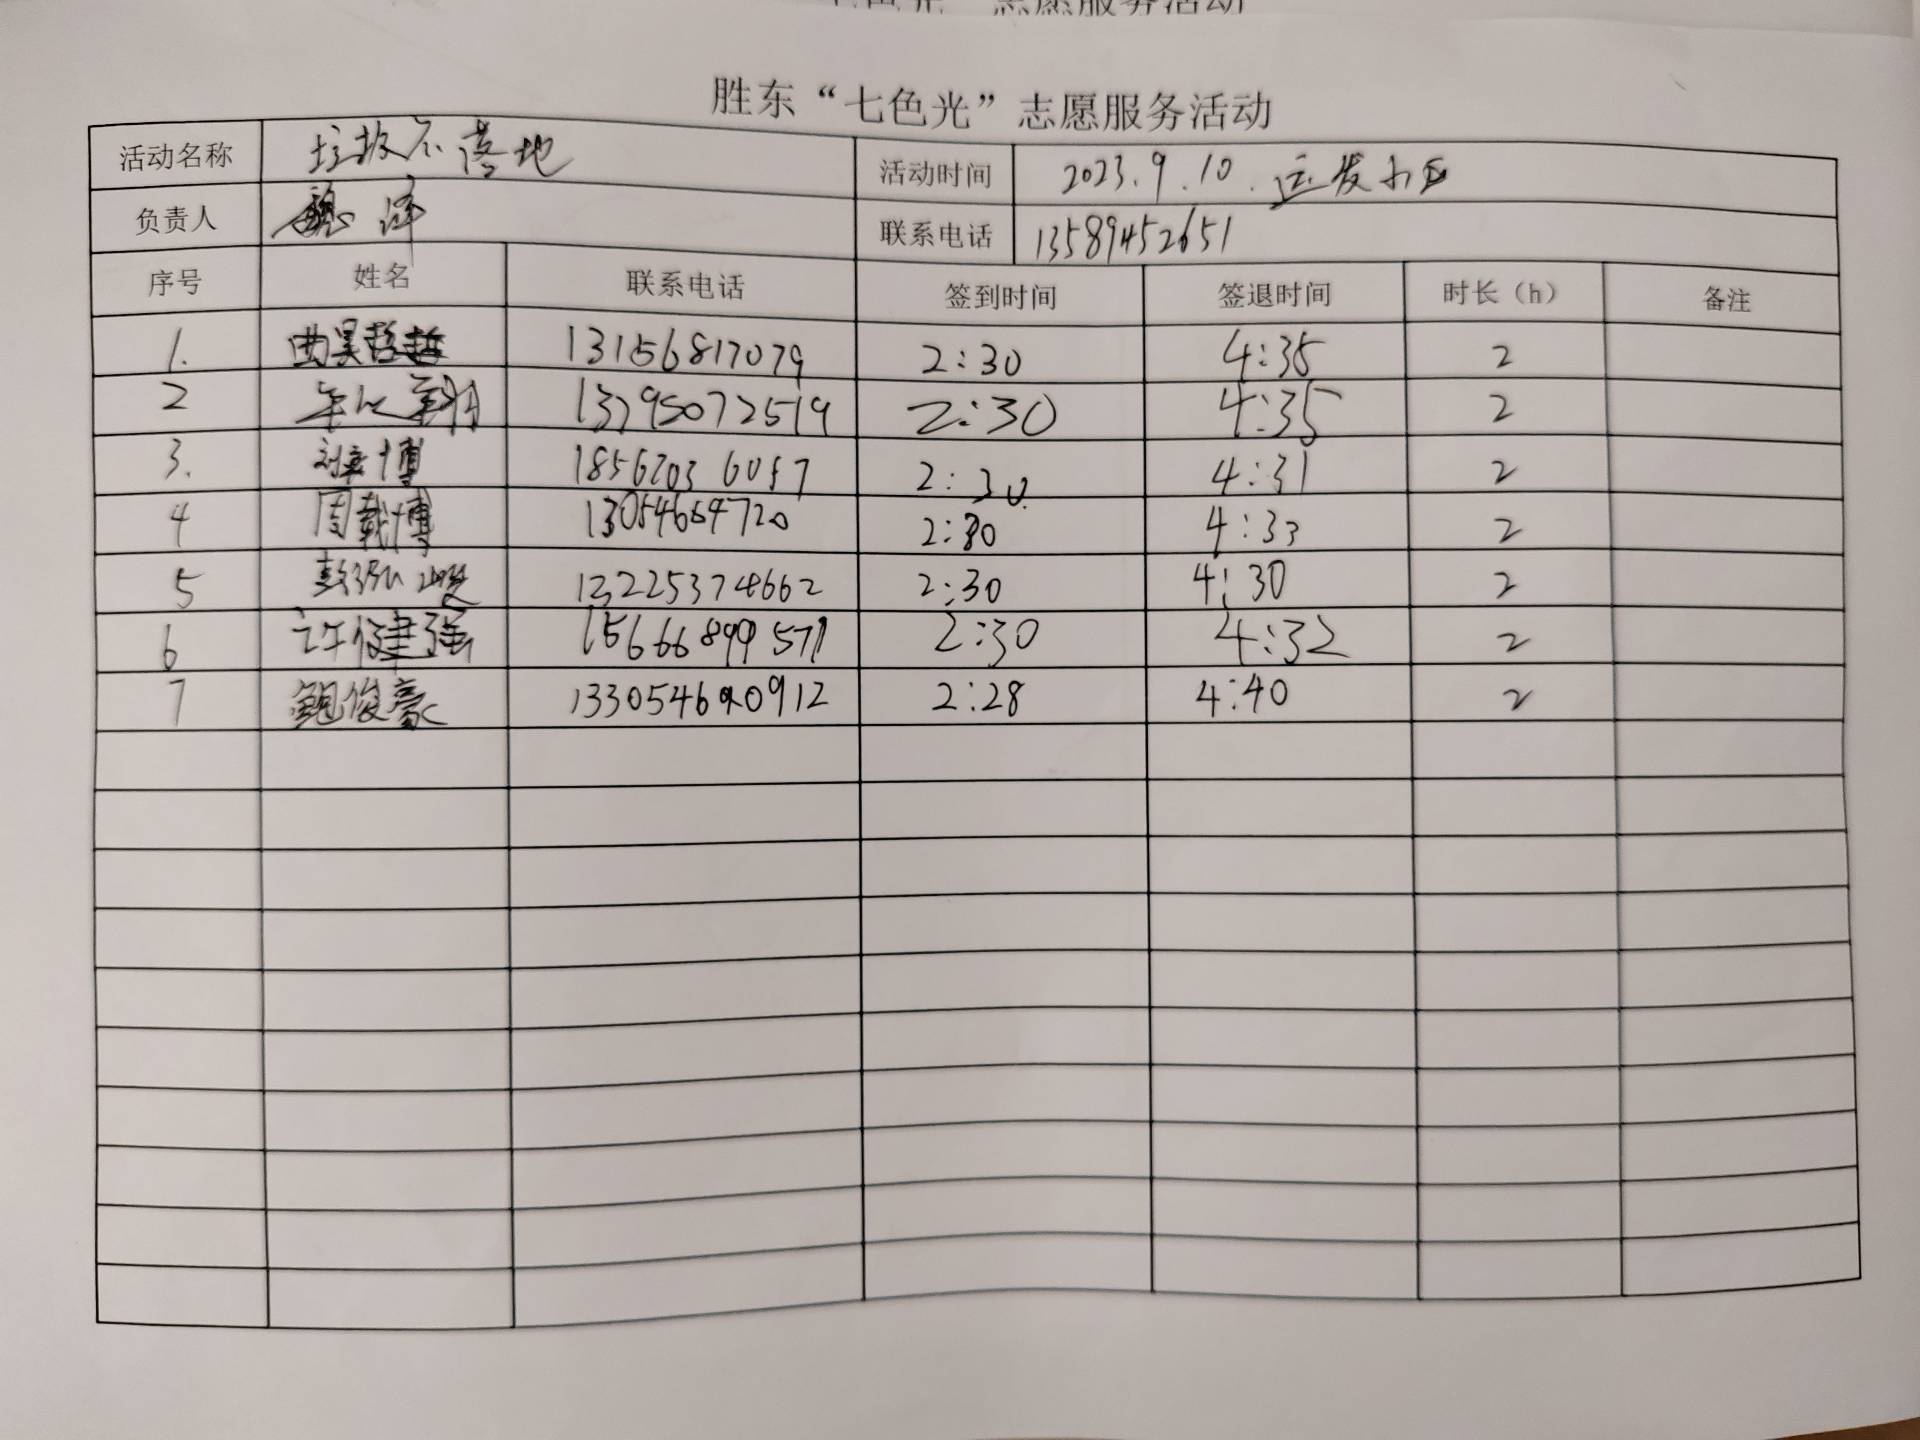 胜东“七色光”志愿服务活动
活动名称 垃圾不落地 活动时间 2023.9.10.运发小区
负责人 魏泽 联系电话 13589452651
序号 姓名 联系电话 签到时间 签退时间 时长（h） 备注
1. 曲昊哲 13156817079 2:30 4:35 2
2 13795072519 2:30 4:35 2
3. 博 18562036057 2:30. 4:31 2
4 周载博 13054654720 2:30 4:33 2
5 彭泓峻 13225374662 2:30 4:30 2
6 许健强 15666899571 2:30 4:32 2
7 鲍俊豪 2:28 4:40 2